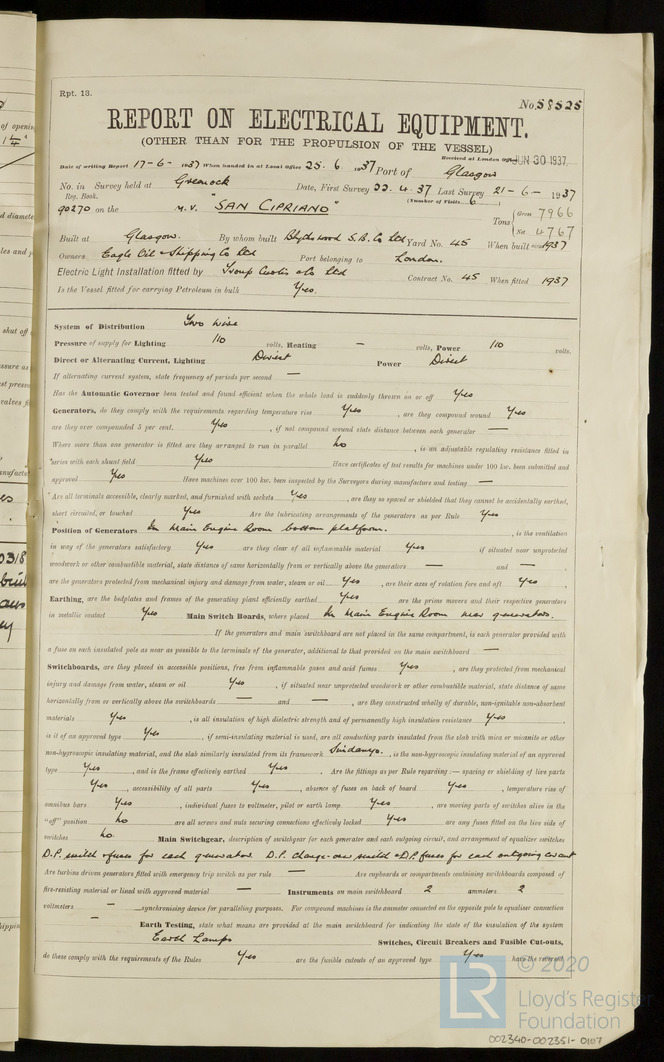 Rpt. 13.
No. 58525
REPORT ON ELECTRICAL EQUIPMENT.
(OTHER THAN FOR THE PROPULSION OF THE VESSEL)
Received at London Office JUN 30 1937
Date of writing Report 17-6-1937 When handed in at Local Office 25.6.1937 Port of Glasgow
No. in Survey held at Greenock Date, First Survey 22.4.37 Last Survey 21-6-1937
Reg. Book. (Number of Visits 6)
90270 on the M.V. "SAN CIPRIANO" Tons { Gross 7966
Net 4767
Built at Glasgow. By whom built Blythswood S.B. Co Ltd Yard No. 45 When built 1937
Owners Eagle Oil & Shipping Co Ltd Port belonging to London.
Electric Light Installation fitted by Troup Curtis & Co Ltd Contract No. 45 When fitted 1937
Is the Vessel fitted for carrying Petroleum in bulk Yes.
System of Distribution Two wire
Pressure of supply for Lighting 110 volts, Heating — volts, Power 110 volts.
Direct or Alternating Current, Lighting Direct Power Direct
If alternating current system, state frequency of periods per second —
Has the Automatic Governor been tested and found efficient when the whole load is suddenly thrown on or off Yes
Generators, do they comply with the requirements regarding temperature rise Yes, are they compound wound Yes
are they over compounded 5 per cent. Yes, if not compound wound state distance between each generator —
Where more than one generator is fitted are they arranged to run in parallel No, is an adjustable regulating resistance fitted in
series with each shunt field Yes Have certificates of test results for machines under 100 kw. been submitted and
approved Yes Have machines over 100 kw. been inspected by the Surveyors during manufacture and testing —
Are all terminals accessible, clearly marked, and furnished with sockets Yes, are they so spaced or shielded that they cannot be accidentally earthed,
short circuited, or touched Yes Are the lubricating arrangements of the generators as per Rule Yes
Position of Generators In Main Engine Room bottom platform. , is the ventilation
in way of the generators satisfactory Yes are they clear of all inflammable material Yes if situated near unprotected
woodwork or other combustible material, state distance of same horizontally from or vertically above the generators — and —,
are the generators protected from mechanical injury and damage from water, steam or oil Yes, are their axes of rotation fore and aft Yes,
Earthing, are the bedplates and frames of the generating plant efficiently earthed Yes are the prime movers and their respective generators
in metallic contact Yes Main Switch Boards, where placed In Main Engine Room near generators.
If the generators and main switchboard are not placed in the same compartment, is each generator provided with
a fuse on each insulated pole as near as possible to the terminals of the generator, additional to that provided on the main switchboard —
Switchboards, are they placed in accessible positions, free from inflammable gases and acid fumes Yes, are they protected from mechanical
injury and damage from water, steam or oil Yes, if situated near unprotected woodwork or other combustible material, state distance of same
horizontally from or vertically above the switchboards — and —, are they constructed wholly of durable, non-ignitable non-absorbent
materials Yes, is all insulation of high dielectric strength and of permanently high insulation resistance Yes,
is it of an approved type Yes, if semi-insulating material is used, are all conducting parts insulated from the slab with mica or micanite or other
non-hygroscopic insulating material, and the slab similarly insulated from its framework Sindanyo., is the non-hygroscopic insulating material of an approved
type Yes, and is the frame effectively earthed Yes. Are the fittings as per Rule regarding :— spacing or shielding of live parts
Yes, accessibility of all parts Yes, absence of fuses on back of board Yes, temperature rise of
omnibus bars Yes, individual fuses to voltmeter, pilot or earth lamp Yes, are moving parts of switches alive in the
"off" position No are all screws and nuts securing connections effectively locked Yes are any fuses fitted on the live side of
switches No. Main Switchgear, description of switchgear for each generator and each outgoing circuit, and arrangement of equalizer switches
D.P. switch & fuses for each generator. D.P. change-over switch & D.P. fuses for each outgoing circuit
Are turbine driven generators fitted with emergency trip switch as per rule — Are cupboards or compartments containing switchboards composed of
fire-resisting material or lined with approved material — Instruments on main switchboard 2 ammeters 2
voltmeters — synchronising device for paralleling purposes. For compound machines is the ammeter connected on the opposite pole to equaliser connection
— Earth Testing, state what means are provided at the main switchboard for indicating the state of the insulation of the system
Earth Lamps Switches, Circuit Breakers and Fusible Cut-outs,
do these comply with the requirements of the Rules Yes are the fusible cutouts of an approved type Yes have the reverse
© 2020
LR
Lloyd's Register
Foundation
002340-002351-0107